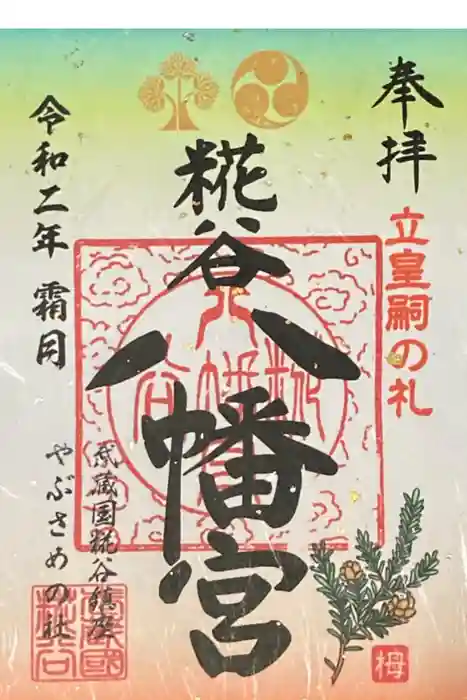 奉拝
立皇嗣の礼
糀谷八幡宮
令和二年 霜月
武蔵国糀谷鎮座
やぶさめの社
栂